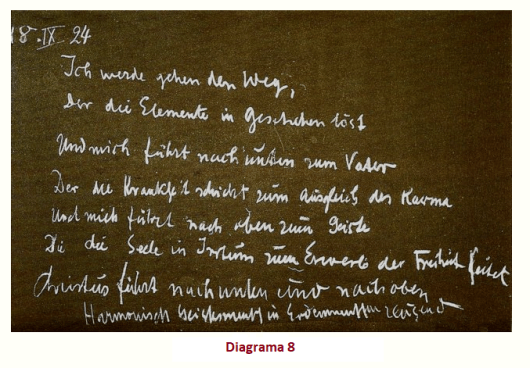 18. IX 24
Ich werde gehen den Weg,
Der die Elemente in Geschehen löst
Und mich führt nach unten zum Vater
Der die Krankheit schickt zum Ausgleich des Karma
Und mich führt nach oben zum Geiste
die Seele in Irrtum zum Erwerb der Freiheit leitet
Christus führt nach unten und nach oben
Harmonisch Geistesmensch in Erdenmenschen zeugend
Diagrama 8